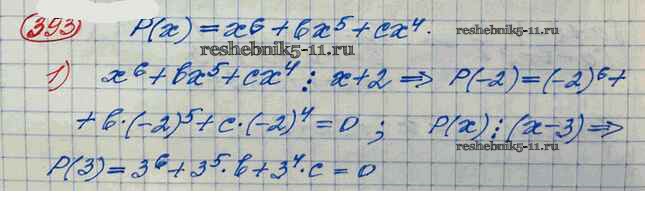 393 P(x) = x⁶ + bx⁵ + cx⁴.
reshebnik5-11.ru
1) x⁶ + bx⁵ + cx⁴ ⋮ x + 2 ⇒ P(-2) = (-2)⁶ +
+ b·(-2)⁵ + c·(-2)⁴ = 0 ; P(x) ⋮ (x - 3) ⇒
reshebnik5-11.ru
P(3) = 3⁶ + 3⁵·b + 3⁴·c = 0